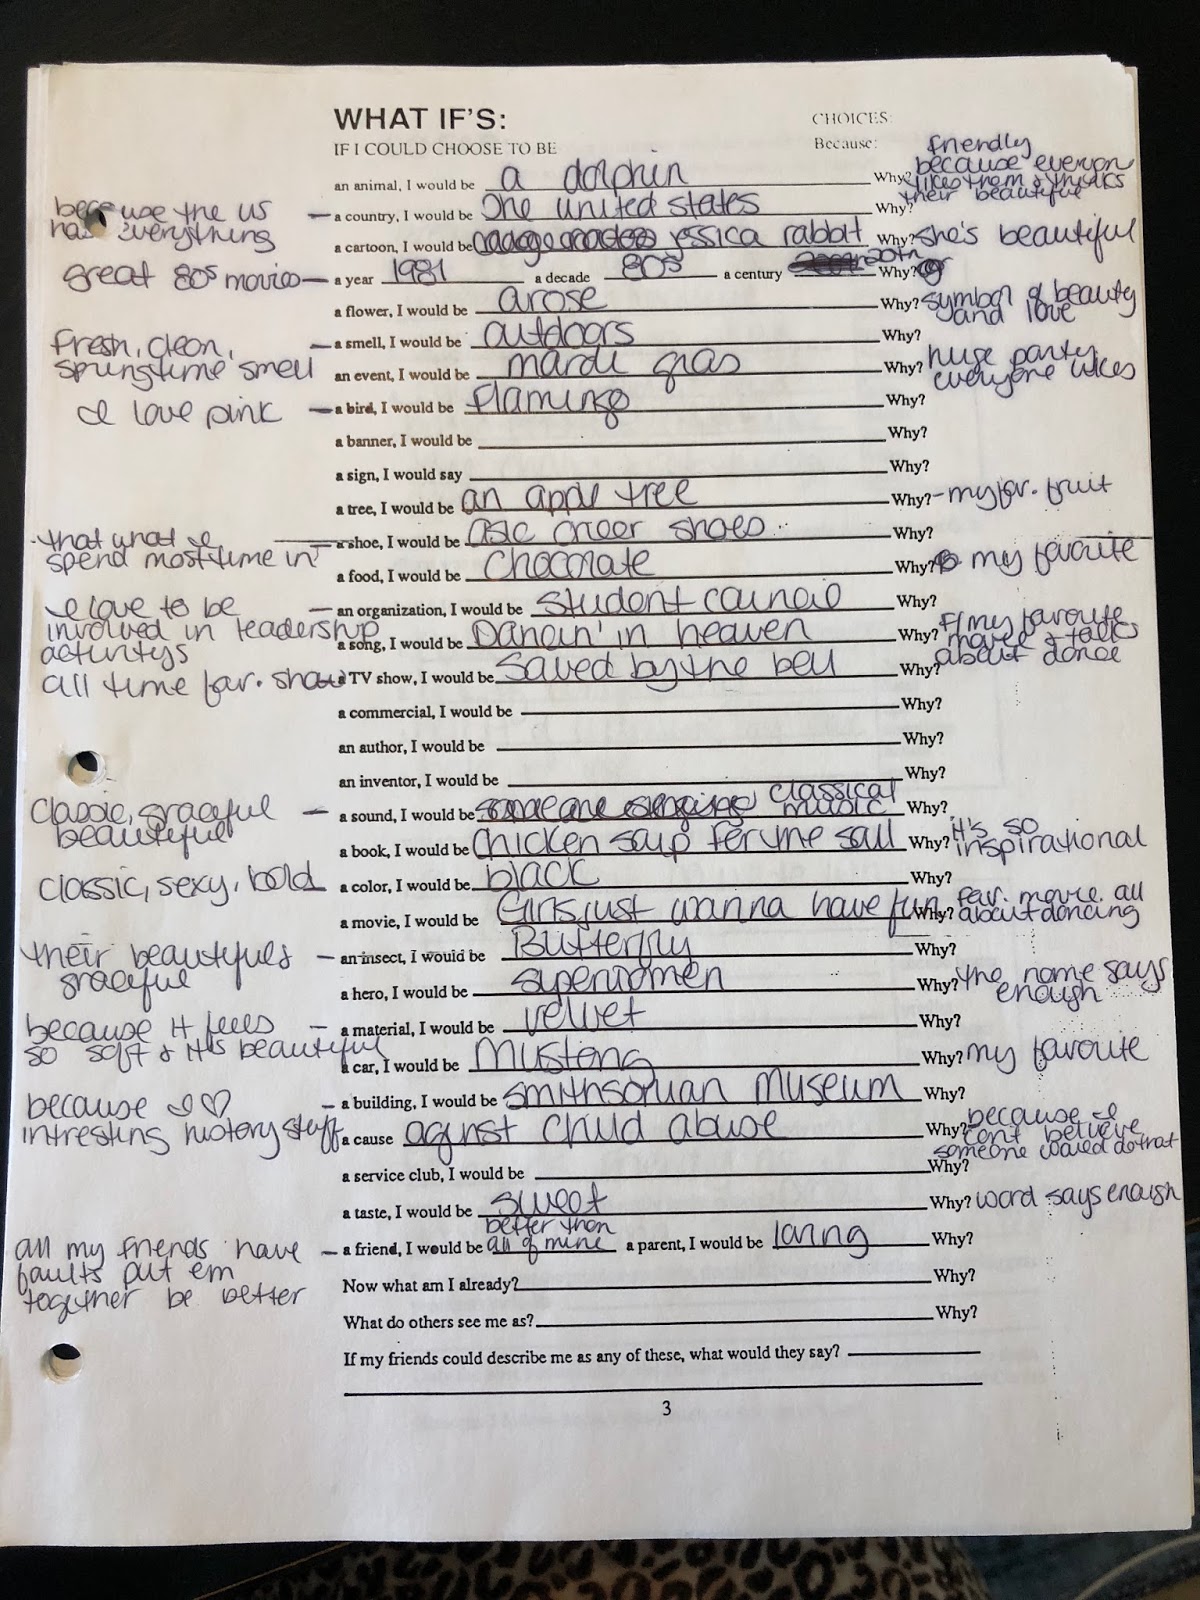 WHAT IF'S: CHOICES:
IF I COULD CHOOSE TO BE Because: friendly
because everyone
an animal, I would be a dolphin Why? likes them & thinks
their beautiful
because the US
has everything
– a country, I would be The united states Why?
a cartoon, I would be jessica rabbit Why? she's beautiful
great 80s movies – a year 1981 a decade 80s a century 20th Why?
a flower, I would be a rose Why? symbol of beauty
and love
fresh, clean,
springtime smell
– a smell, I would be outdoors Why?
an event, I would be mardi gras Why? huge party
everyone likes
I love pink – a bird, I would be Flamingo Why?
a banner, I would be Why?
a sign, I would say Why?
a tree, I would be an apple tree Why? – my fav. fruit
that what I
spend most time in
a shoe, I would be asic cheer shoes Why?
a food, I would be chocolate Why? my favorite
I love to be
involved in leadership
activitys
– an organization, I would be student council Why?
a song, I would be Dancin' in heaven Why? F/ my favorite
movie & talks
about dance
all time fav. show a TV show, I would be Saved by the bell Why?
a commercial, I would be Why?
an author, I would be Why?
an inventor, I would be Why?
Classic, graceful
beautiful
– a sound, I would be someone singing classical
music Why?
a book, I would be Chicken soup for the soul Why? it's so
inspirational
classic, sexy, bold a color, I would be black Why?
a movie, I would be Girls just wanna have fun Why? fav. movie all
about dancing
their beautiful &
graceful
– an insect, I would be Butterfly Why?
a hero, I would be superwomen Why? the name says
enough
because it feels
so soft & it's beautiful
– a material, I would be velvet Why?
a car, I would be Mustang Why? my favorite
because I ♡
intresting history stuff
– a building, I would be smithsonian Museum Why?
a cause aginst child abuse Why? because I
can't believe
someone would do that
a service club, I would be Why?
a taste, I would be sweet Why? word says enough
all my friends have
faults put em
together be better
– a friend, I would be better than
all of mine a parent, I would be loving Why?
Now what am I already? Why?
What do others see me as? Why?
If my friends could describe me as any of these, what would they say?
3